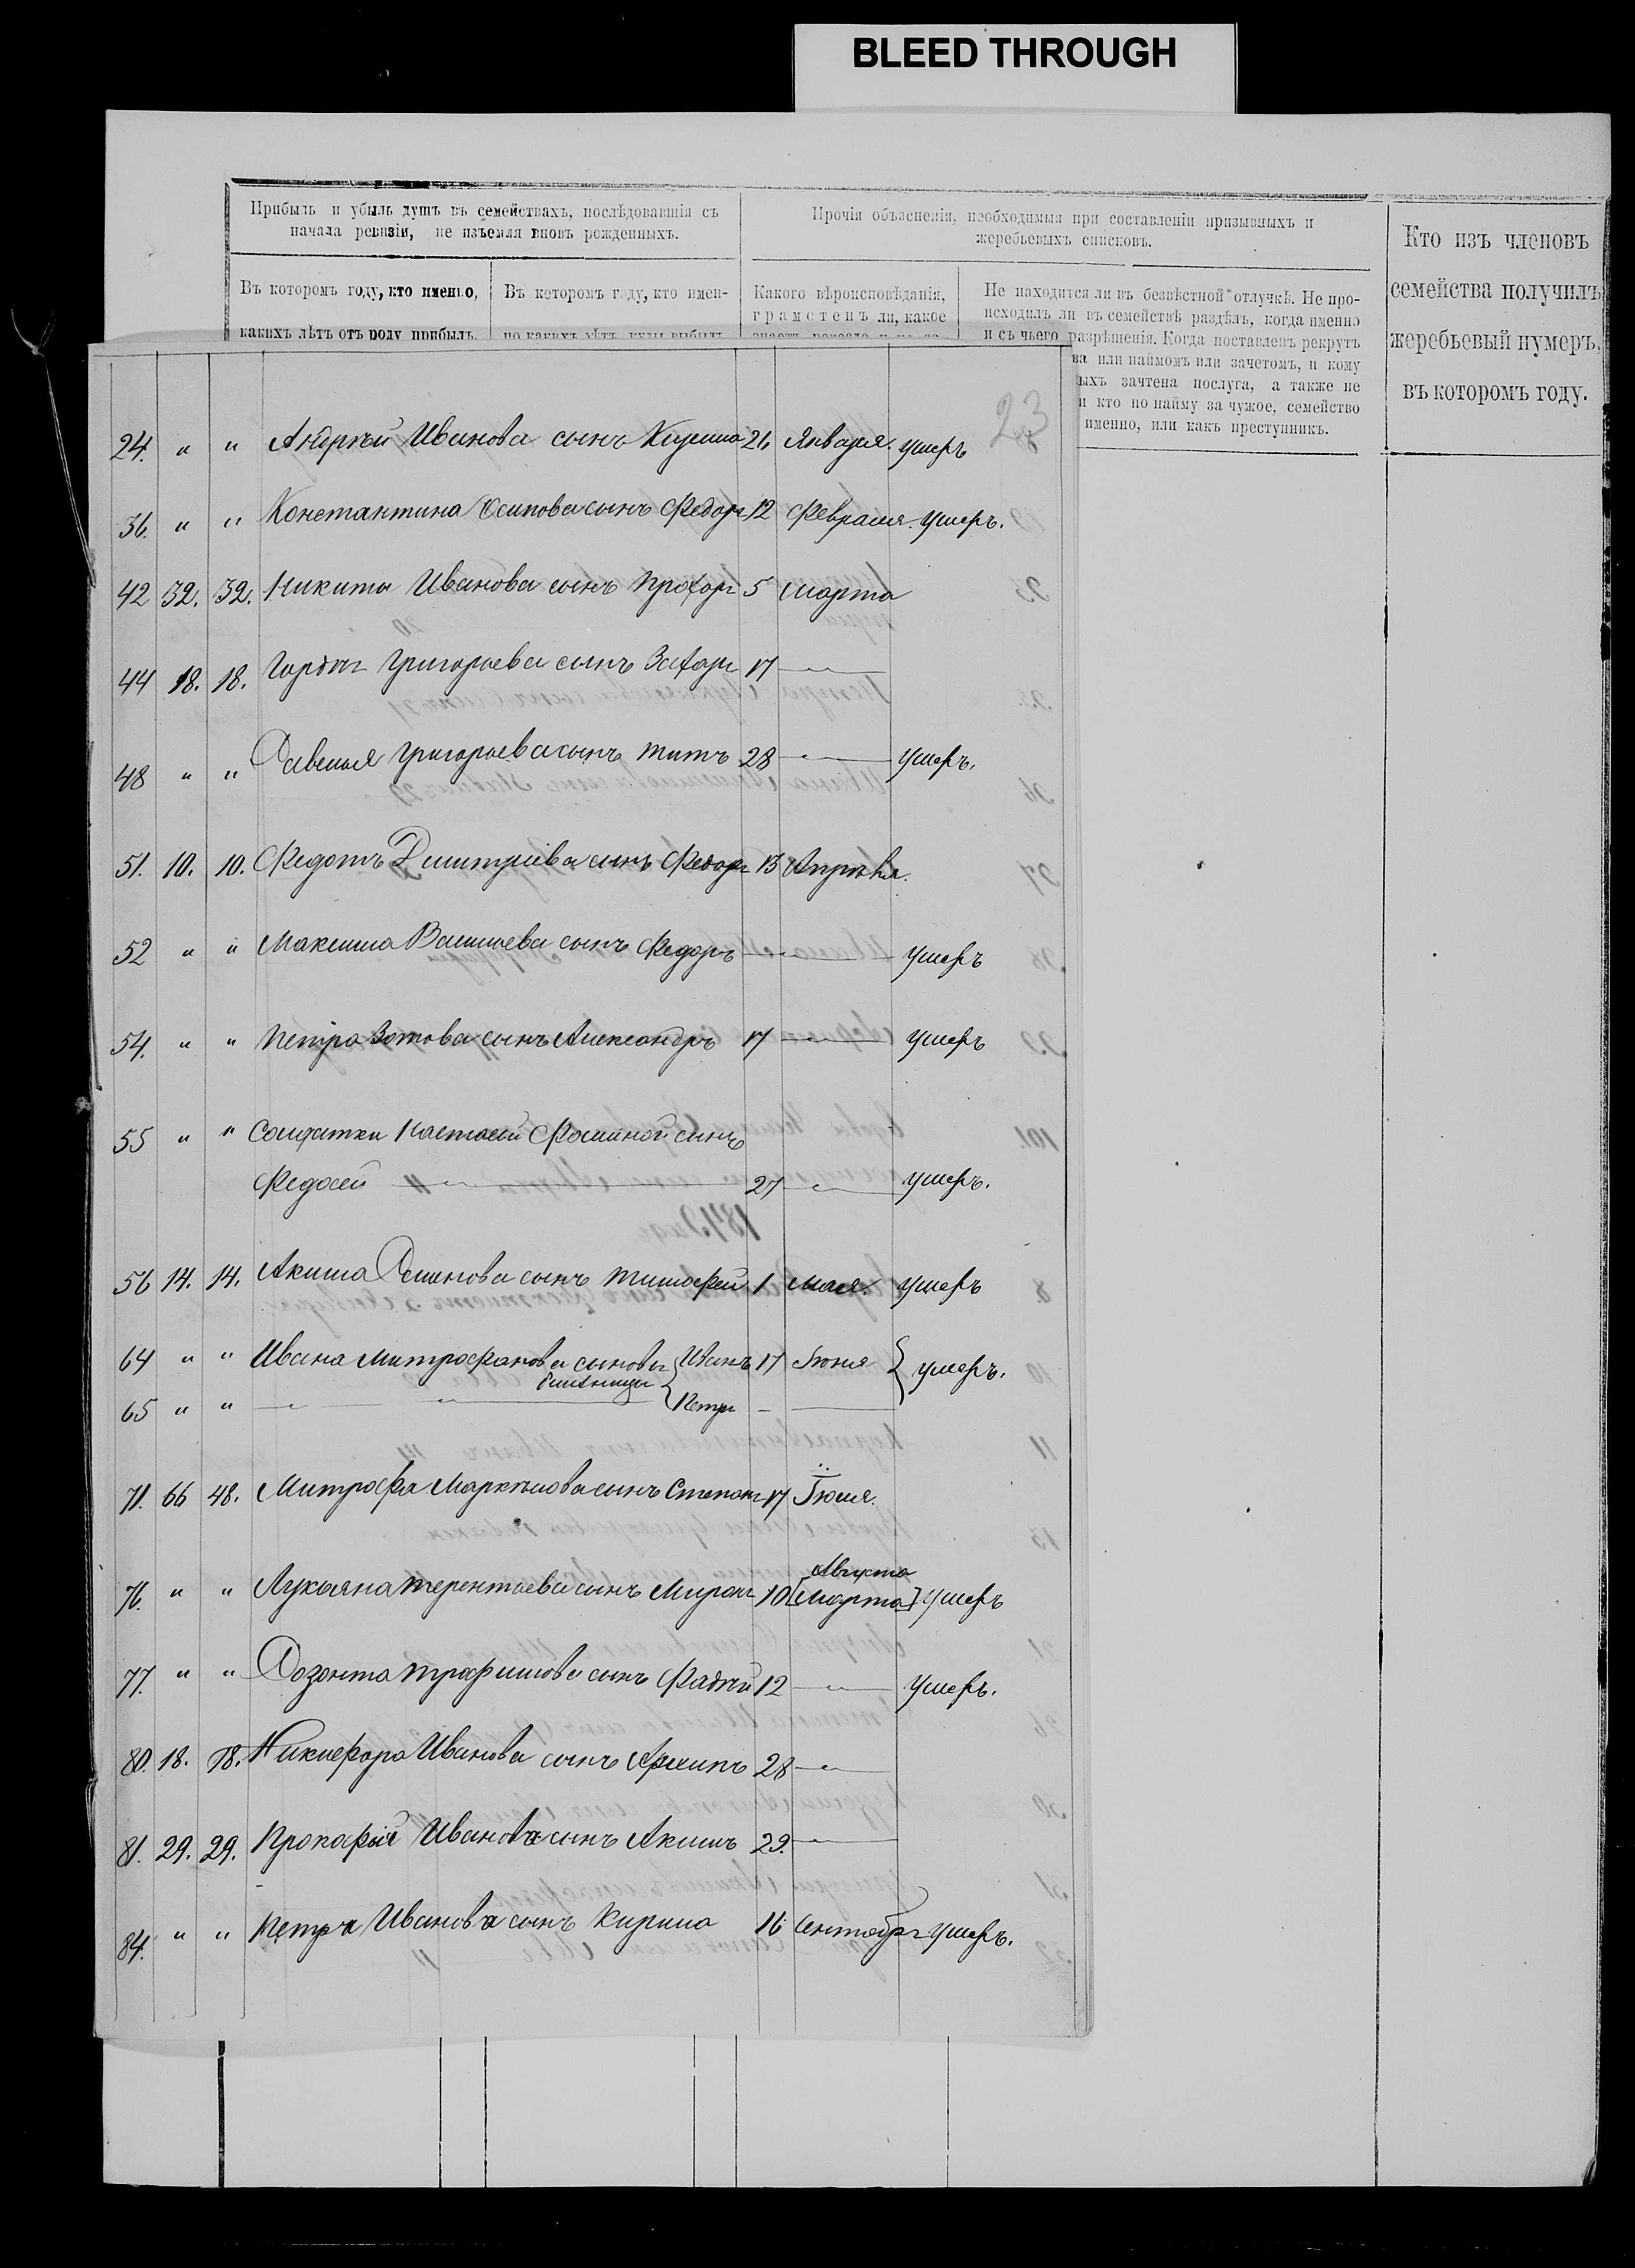 BLEED THROUGH
Прибыль и убыль душъ въ семействахъ, послѣдовавшія съ
начала ревизіи, не изъемля вновь рожденныхъ.
Прочія объясненія, необходимыя при составленіи призывныхъ и
жеребьевыхъ списковъ.
Кто изъ членовъ
семейства получилъ
жеребьевый нумеръ,
въ которомъ году.
Въ которомъ году, кто именно,
какихъ лѣтъ отъ роду прибылъ.
Въ которомъ году, кто имен-
но какихъ лѣтъ, куда выбылъ
Какого вѣроисповѣданія,
грамотенъ ли, какое
Не находится ли въ безвѣстной отлучкѣ. Не про-
исходилъ ли въ семействѣ раздѣлъ, когда именно
и съ чьего разрѣшенія. Когда поставленъ рекрутъ
ва или наймомъ или зачетомъ, и кому
ыхъ зачтена послуга, а также не
и кто по найму за чужое, семейство
именно, или какъ преступникъ.
23
24. " " Андрѣй Иванова сынъ Кирила 26 Января. умеръ
36. " " Константина Осипова сынъ Федоръ 12 Февраля. умеръ.
42 32. 32. Никиты Иванова сынъ Прохоръ 5 Марта
44 18. 18. Гордѣя Григорьева сынъ Захаръ 17 — " —
48 " " Савелья Григорьева сынъ Титъ 28 — " — умеръ.
51. 10. 10. Федотъ Дмитріева сынъ Федоръ 13 Апрѣля.
52 " " Максима Васильева сынъ Федоръ — " — умеръ
54. " " Петра Зотова сынъ Александръ 17 — " — умеръ
55 " " Солдатки Настасьи Фоминой сынъ
Федосей — " — 27 — " — умеръ.
56 14. 14. Акима Семенова сынъ Тимофей 1 мая. умеръ
64 " " Ивана Митрофанова сыновья { Иванъ 17 Іюня { умеръ.
близнецы
65 " " — " — " — Петръ — —
71. 66 48. Митрофа Маркѣлова сынъ Степанъ 17 Іюля.
Августа
76. " " Лукьяна Терентьева сынъ Миронъ 10 [Марта] умеръ
77. " " Созонта Трофимова сынъ Фадѣй 12 — " — умеръ.
80. 18. 18. Никифора Иванова сынъ Архипъ 28 — " —
81. 29. 29. Прокофья Иванова сынъ Акимъ 29. — " —
84. " " Петра Иванова сынъ Кирила 16 Сентября умеръ.